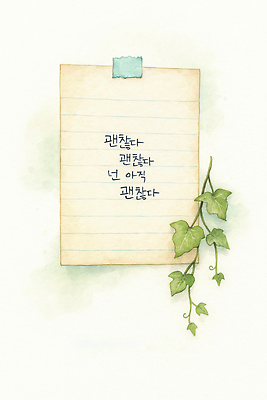 괜찮다
괜찮다
넌 아직
괜찮다